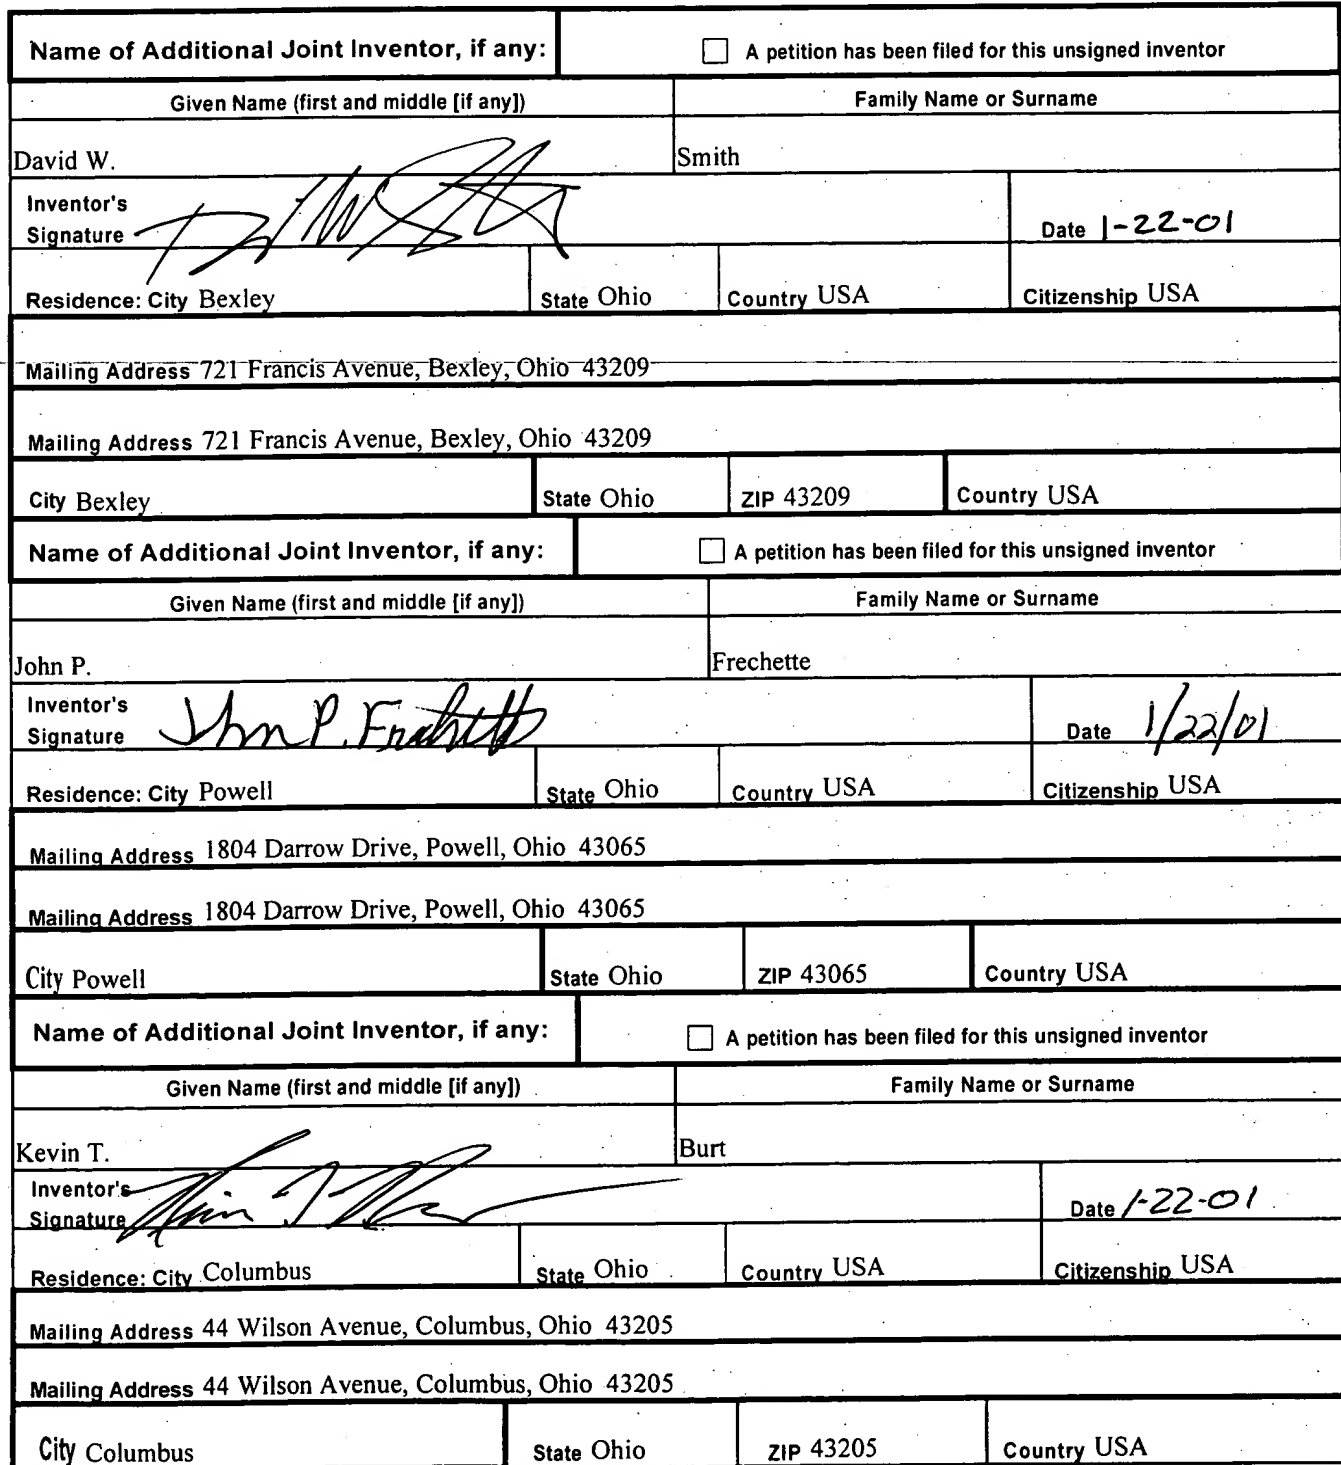 Name of Additional Joint Inventor, if any: ☐ A petition has been filed for this unsigned inventor
Given Name (first and middle [if any]) Family Name or Surname
David W. Smith
Inventor's
Signature Date 1-22-01
Residence: City Bexley State Ohio Country USA Citizenship USA
Mailing Address 721 Francis Avenue, Bexley, Ohio 43209
Mailing Address 721 Francis Avenue, Bexley, Ohio 43209
City Bexley State Ohio ZIP 43209 Country USA
Name of Additional Joint Inventor, if any: ☐ A petition has been filed for this unsigned inventor
Given Name (first and middle [if any]) Family Name or Surname
John P. Frechette
Inventor's
Signature John P. Frechette Date 1/22/01
Residence: City Powell State Ohio Country USA Citizenship USA
Mailing Address 1804 Darrow Drive, Powell, Ohio 43065
Mailing Address 1804 Darrow Drive, Powell, Ohio 43065
City Powell State Ohio ZIP 43065 Country USA
Name of Additional Joint Inventor, if any: ☐ A petition has been filed for this unsigned inventor
Given Name (first and middle [if any]) Family Name or Surname
Kevin T. Burt
Inventor's
Signature Date 1-22-01
Residence: City Columbus State Ohio Country USA Citizenship USA
Mailing Address 44 Wilson Avenue, Columbus, Ohio 43205
Mailing Address 44 Wilson Avenue, Columbus, Ohio 43205
City Columbus State Ohio ZIP 43205 Country USA